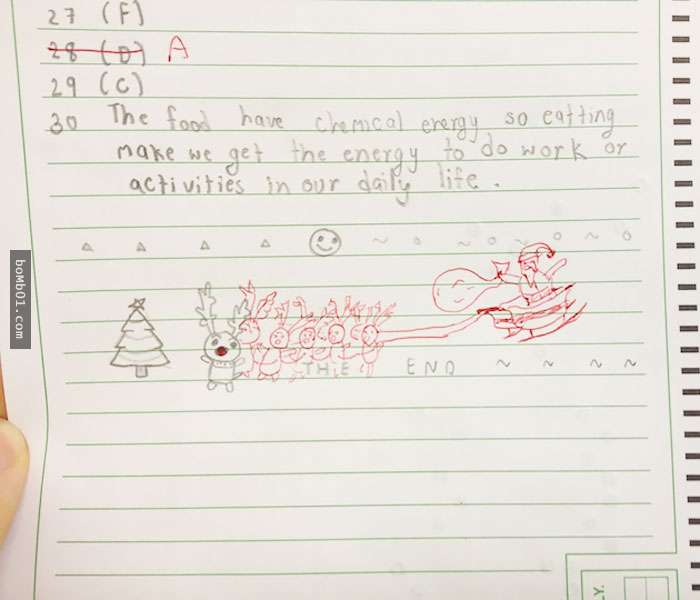 27 (F)
28 (D) A
29 (C)
30 The food have chemical energy so eatting
make we get the energy to do work or
activities in our daily life.
THE END
bomb01.com
Y.